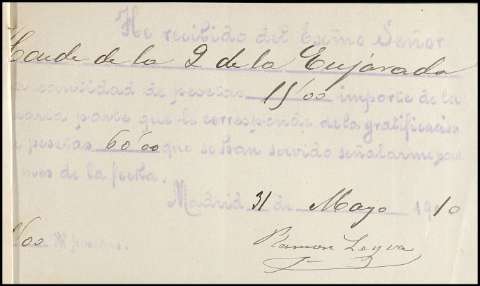 He recibido del Excmo Señor
Conde de la Q de la Enjarada
a cantidad de pesetas 15'00 importe de la
parte que le corresponde de la gratificacion
e pesetas 60'00 que se han servido señalarme por
mes de la fecha.
Madrid 31 de Mayo 1910
'00
Ramon Leyva